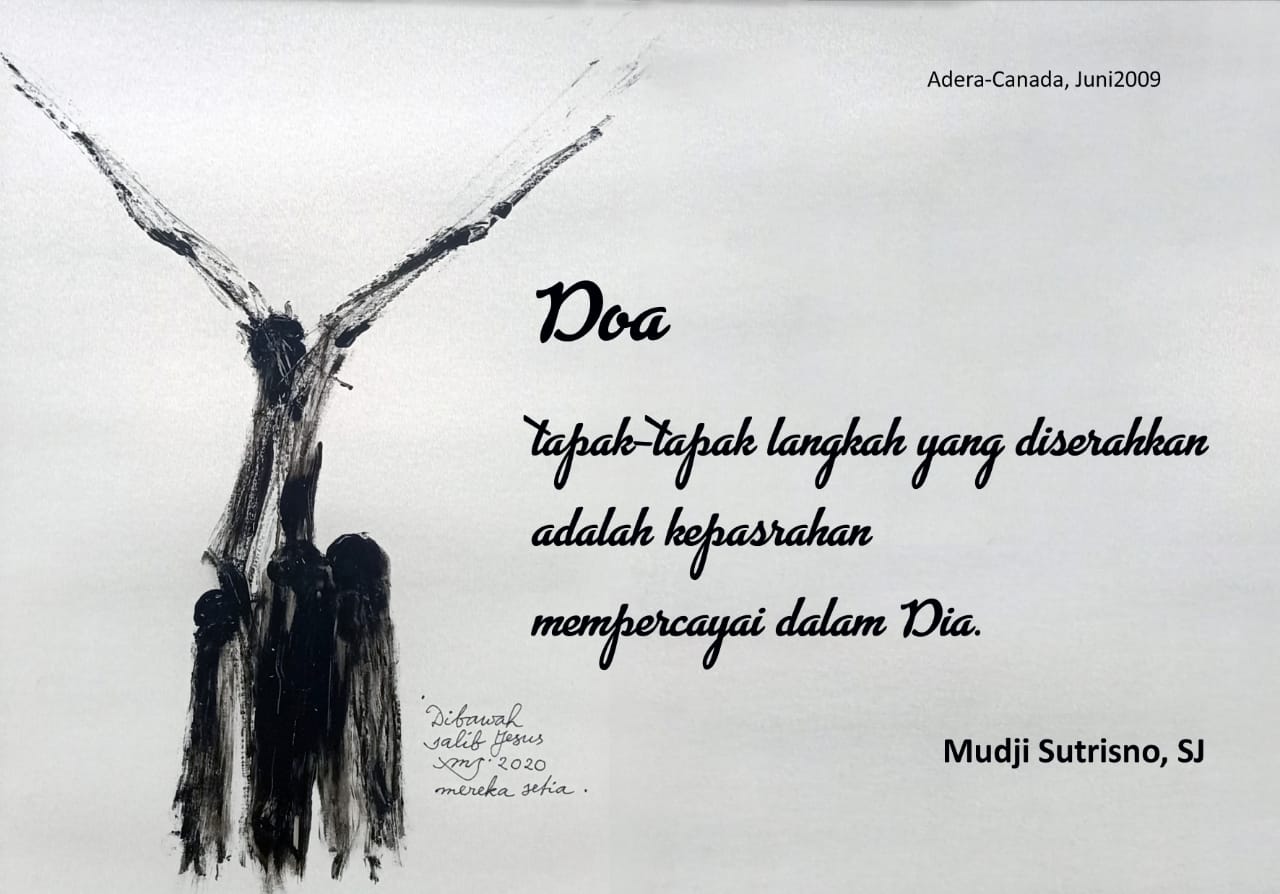 Adera-Canada, Juni2009
Doa
tapak-tapak langkah yang diserahkan
adalah kepasrahan
mempercayai dalam Dia.
Dibawah
salib Jesus
xms. 2020
mereka setia.
Mudji Sutrisno, SJ